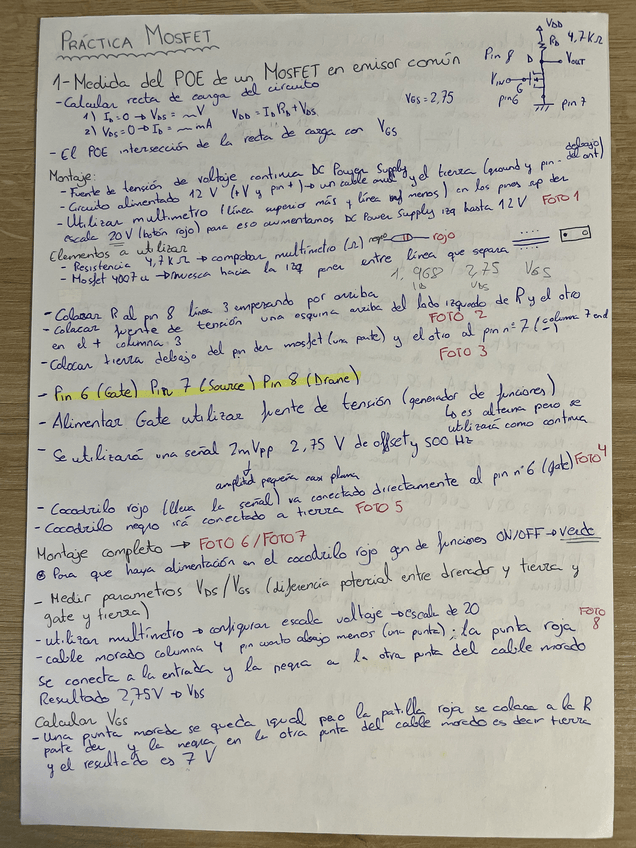 PRÁCTICA MOSFET
VDD
RD 4,7KΩ
Pin 8 D VOUT
VIN G
pin6
pin 7
1-Medida del POE de un MOSFET en emisor común
- Calcular recta de carga del circuito
1) ID=0 → VDS = V VDD = ID RD + VDS
2) VDS=0 → ID = mA
VGS = 2,75
- El POE intersección de la recta de carga con VGS
Montaje:
- Fuente de tensión de voltaje continua DC Power Supply
- Circuito alimentado 12 V (+V y pin +) → un cable y el tierra (ground y pin - debajo del ant)
- Utilizar multimetro (línea superior más y línea menos) en los pines sup der
escala 20 V (botón rojo) para eso aumentamos DC Power Supply izq hasta 12 V FOTO 1
Elementos a utilizar
- Resistencia 4,7 KΩ → comprobar multímetro (Ω) negro rojo
- Mosfet 4007 u → muesca hacia la izq poner entre línea que separa
1,968 2,75 VGS
ID VDS
- Colocar R al pin 8 línea 3 empezando por arriba
- Colocar fuente de tensión una esquina arriba del lado izquierdo de R y el otro
en el + columna 3 FOTO 2
- Colocar tierra debajo del pin der mosfet (una parte) y el otro al pin nº 7 (columna 7 en el -)
FOTO 3
- Pin 6 (Gate) Pin 7 (Source) Pin 8 (Drane)
- Alimentar Gate utilizar fuente de tensión (generador de funciones)
↳ es alterna pero se
utilizará como continua
- Se utilizará una señal 2mVpp 2,75 V de offset y 500 Hz
amplitud pequeña casi plana
- Cocodrilo rojo (lleva la señal) va conectado directamente al pin nº 6 (gate) FOTO 4
- Cocodrilo negro irá conectado a tierra FOTO 5
Montaje completo → FOTO 6 / FOTO 7
Para que haya alimentación en el cocodrilo rojo gen de funciones ON/OFF → verde
- Medir parametros VDS / VGS (diferencia potencial entre drenador y tierra y
gate y tierra)
- utilizar multímetro → configurar escala voltaje → escala de 20
- cable morado columna 4 pin cuarto abajo menos (una punta); la punta roja FOTO 8
se conecta a la entrada y la negra a la otra punta del cable morado
Resultado 2,75V → VDS
Calcular VGS
- Una punta morada se queda igual pero la patilla roja se coloca a la R
parte der y la negra en la otra punta del cable morado es decir tierra
y el resultado es 7 V